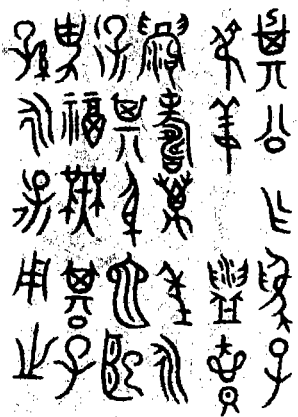 㠱公乍爲子
弔姜盥壺
眉壽萬年永
保其身它巸
受福無期子
孫永保用之